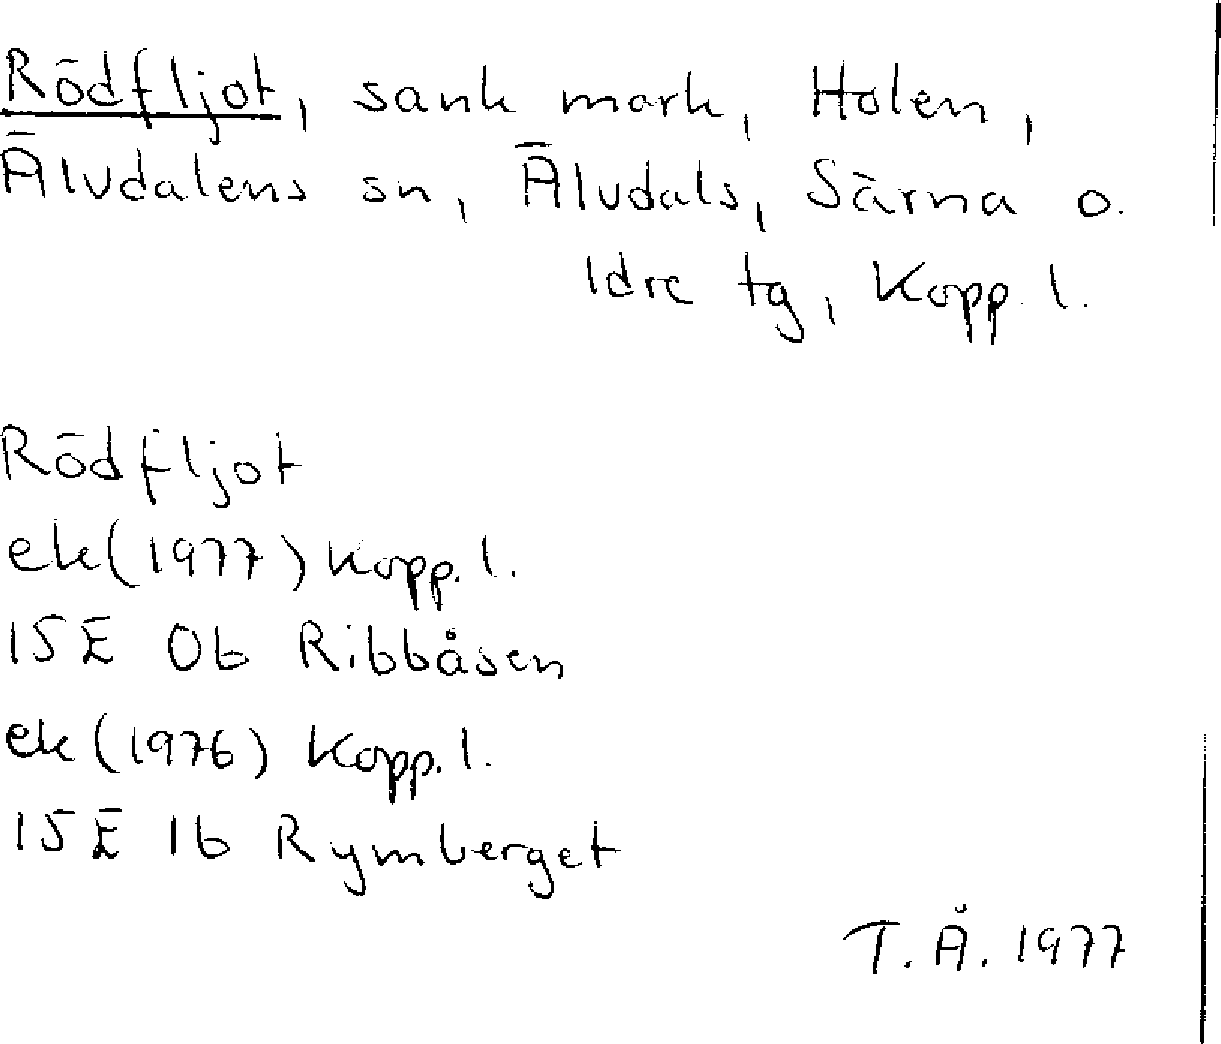 Rödfljot, sank mark, Holen,
Älvdalens sn, Älvdals, Särna o.
Idre tg, Kopp. l.
Rödfljot
ek (1977) Kopp. l.
15E 0b Ribbåsen
ek (1976) Kopp. l.
15E 1b Rymberget
T. Å. 1977